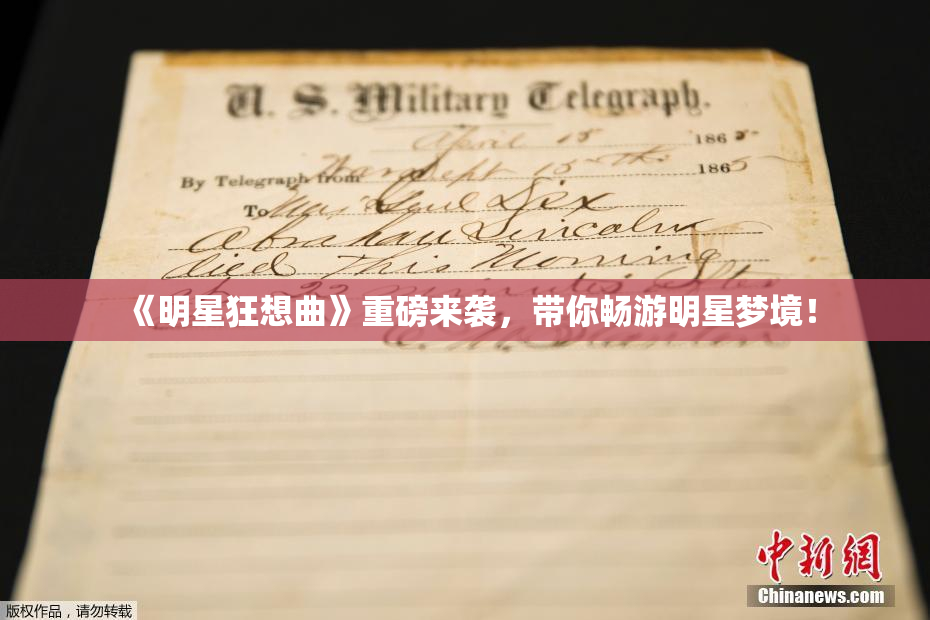 U. S. Military Telegraph.
April 15 1865
By Telegraph from War Dept 15th 1865
To Maj Genl Dix
Abraham Lincoln
died This Morning
at 22 minutes after
《明星狂想曲》重磅来袭，带你畅游明星梦境！
E. M. Stanton
中新网
Chinanews.com
版权作品，请勿转载